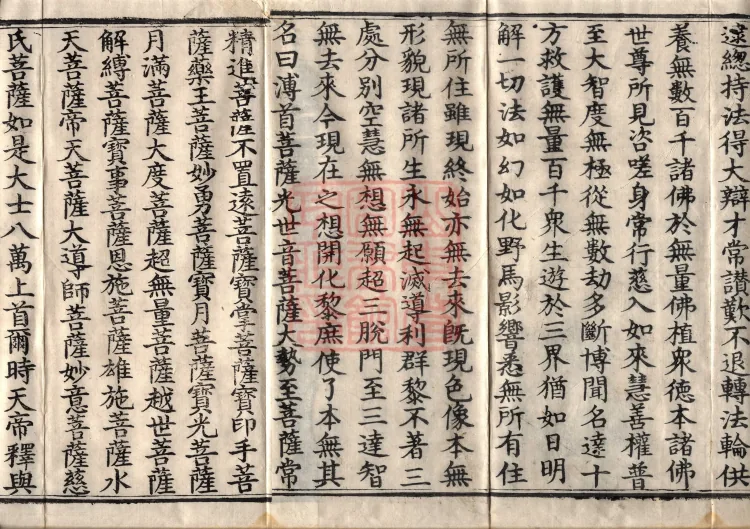 逮總持法得大辯才常讃歎不退轉法輪供
養無數百千諸佛於無量佛植衆德本諸佛
世尊所見咨嗟身常行慈入如來慧善權普
至大智度無極從無數劫多斷博聞名遠十
方救護無量百千衆生遊於三界猶如日明
解一切法如幻如化野馬影響悉無所有住
無所住雖現終始亦無去來旣現色像本無
形貌現諸所生永無起滅導利群黎不著三
處分別空慧無想無願超三脫門至三達智
無去來今現在之想開化黎庶使了本無其
名曰溥首菩薩光世音菩薩大勢至菩薩常
精進菩薩不置遠菩薩寶掌菩薩寶印手菩
薩藥王菩薩妙勇菩薩寶月菩薩寶光菩薩
月滿菩薩大度菩薩超無量菩薩越世菩薩
解縛菩薩寶事菩薩恩施菩薩雄施菩薩水
天菩薩帝天菩薩大導師菩薩妙意菩薩慈
氏菩薩如是大士八萬上首爾時天帝釋與